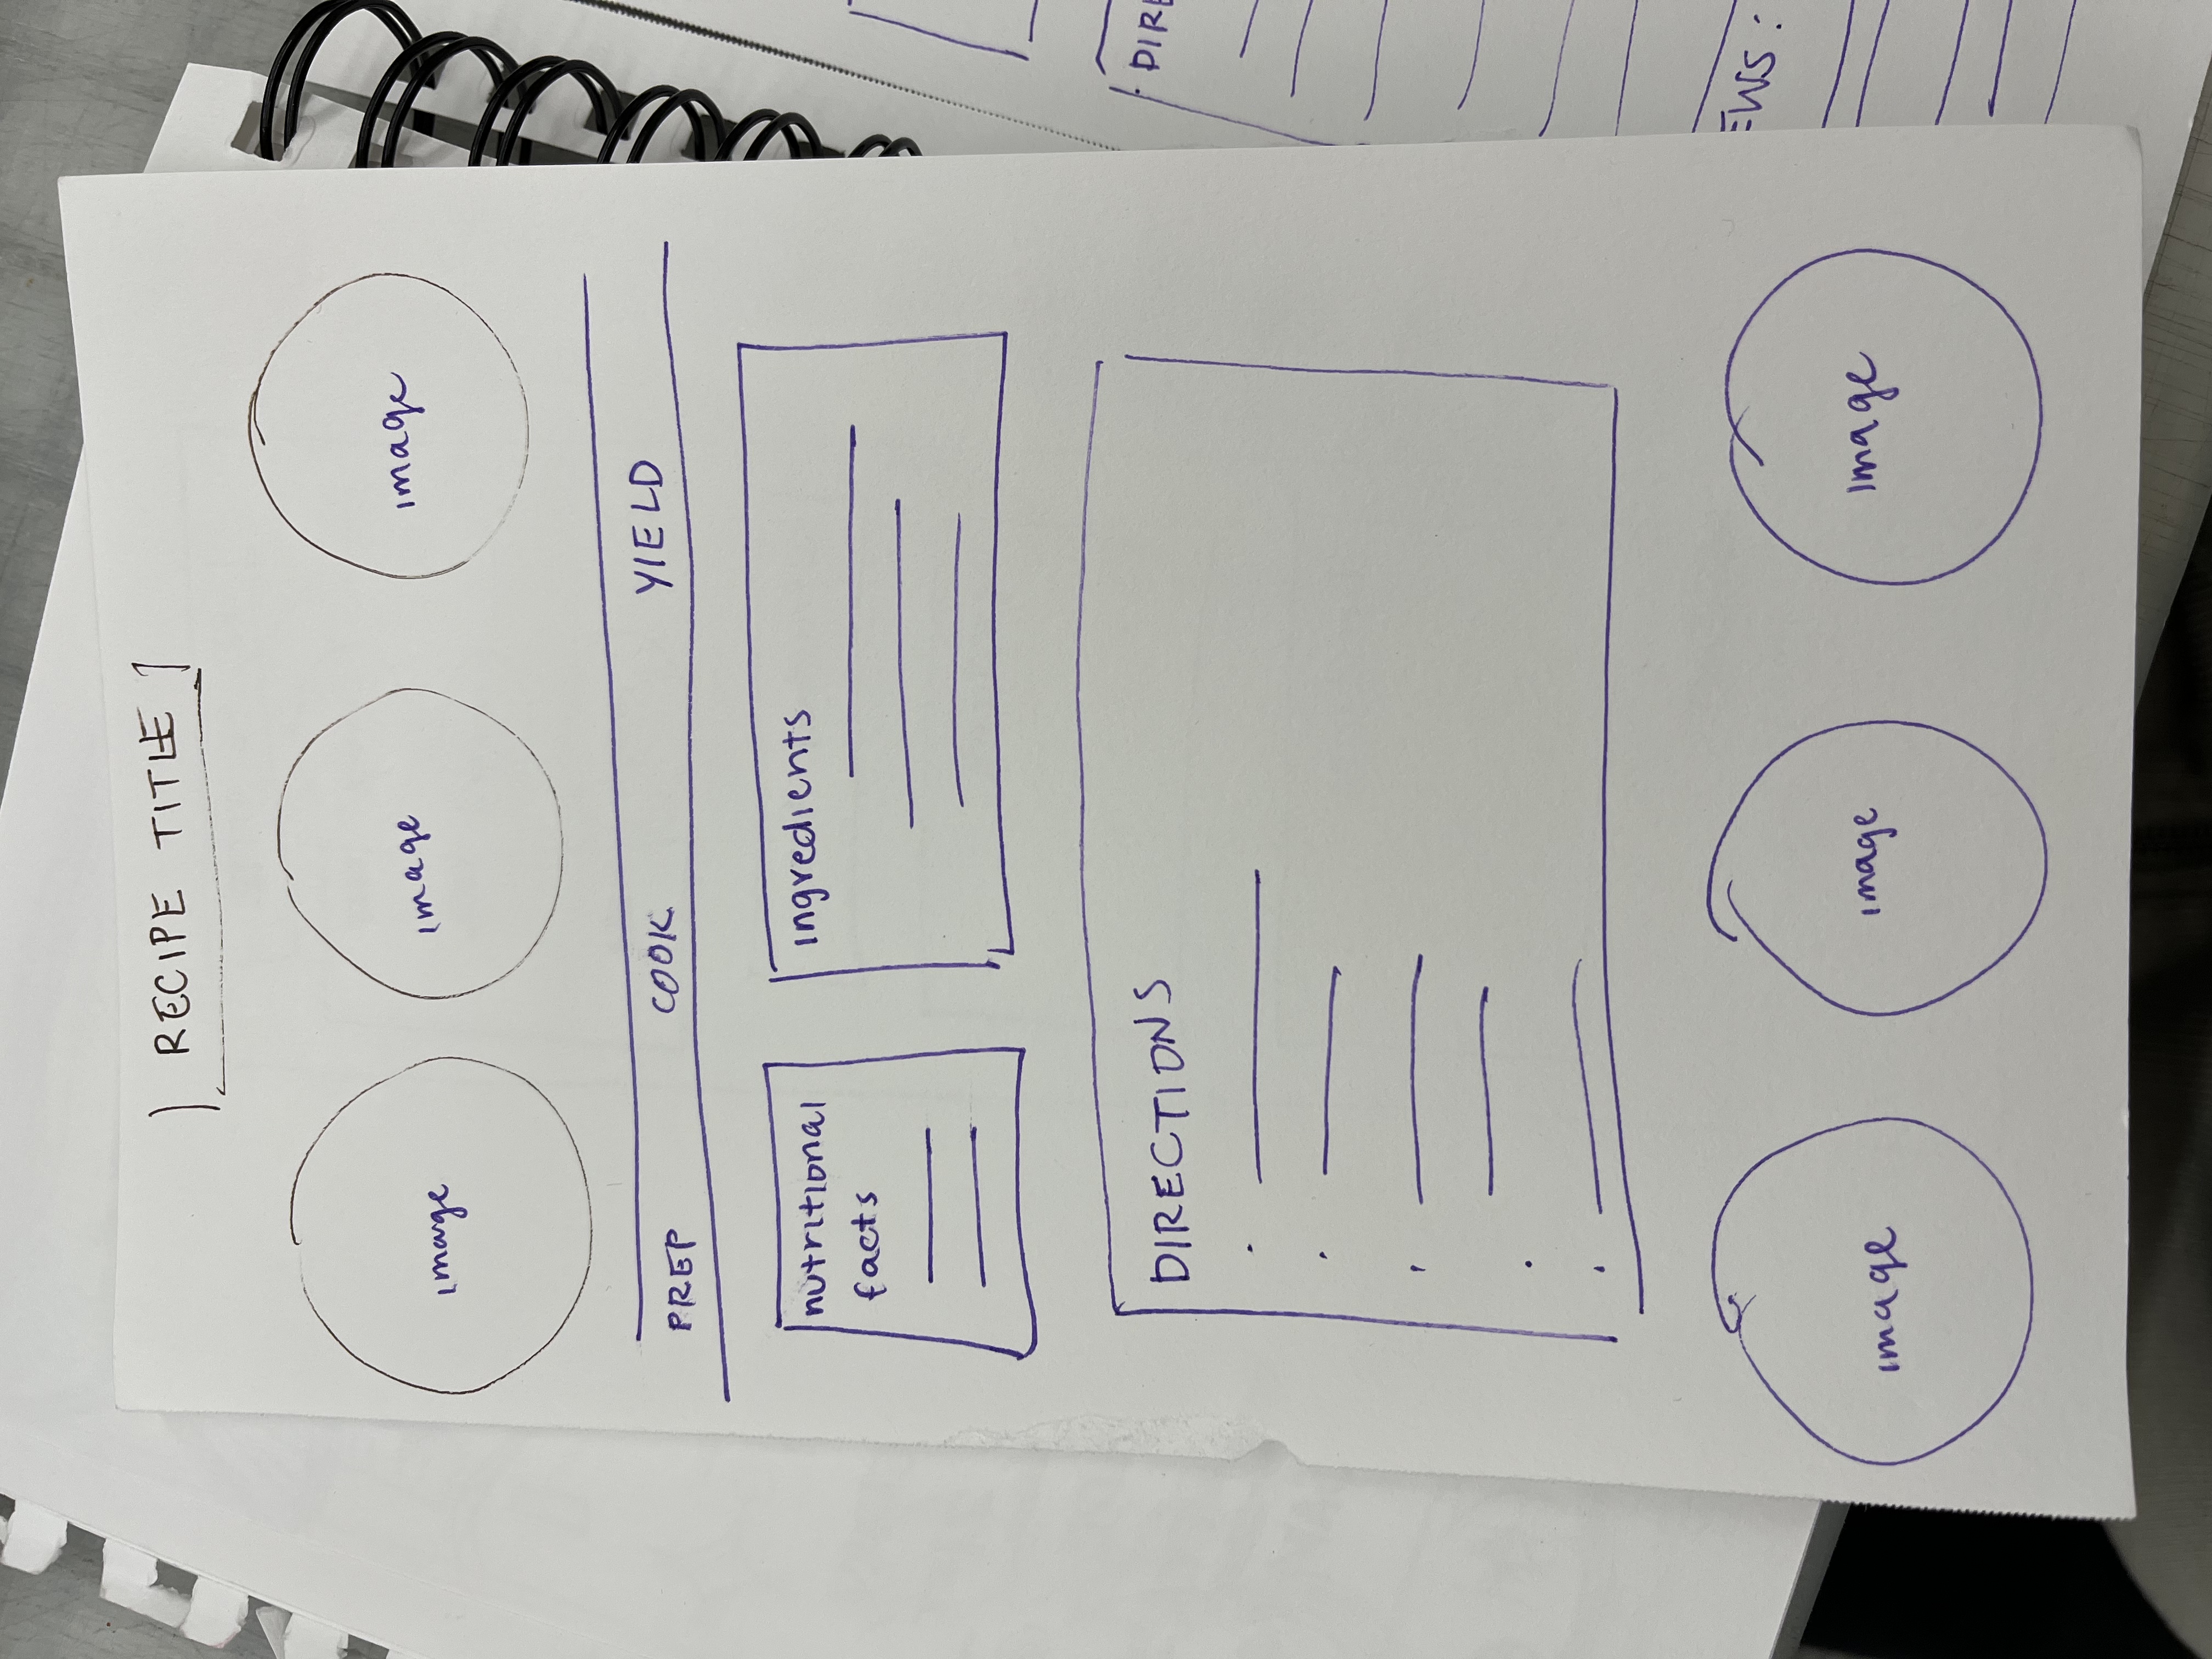 RECIPE TITLE
image image image
PREP COOK YIELD
nutritional
facts
ingredients
DIRECTIONS
image image image
DIRE
EWS: